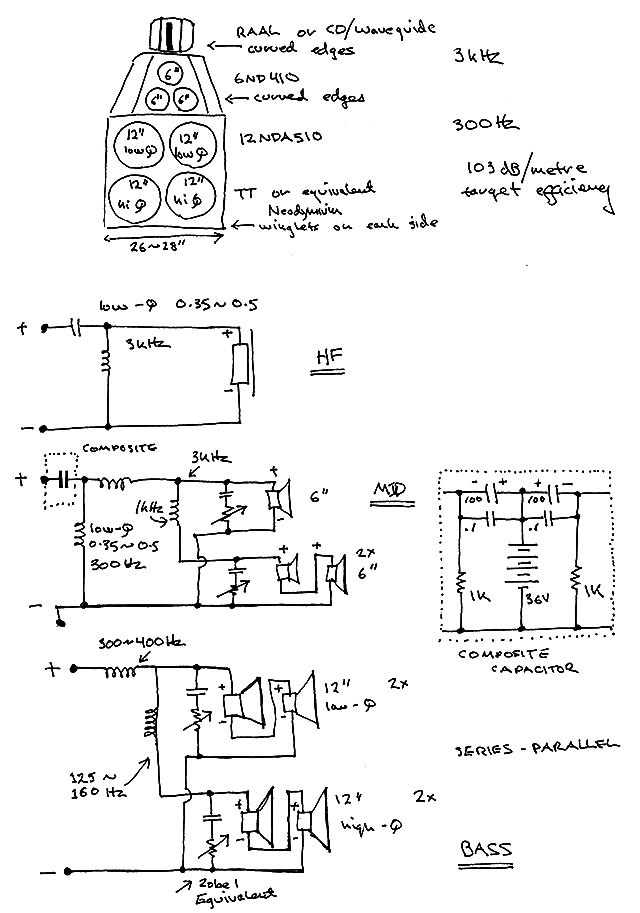 RAAL or CD/waveguide
curved edges
3kHz
6"
6" 6"
6ND410
curved edges
12" 12"
low Q low Q
12NDA510
300Hz
12" 12"
hi Q hi Q
TT or equivalent
Neodymium
winglets on each side
103 dB/metre
target efficiency
26~28"
low-Q 0.35~0.5
+
3kHz
+
-
HF
-
COMPOSITE
+
3kHz
1kHz
+
-
6"
MID
low-Q
0.35~0.5
300 Hz
+ +
- -
2x
6"
-
- + + -
100 100
.1 .1
1K
36V
1K
COMPOSITE
CAPACITOR
300~400Hz
+
+ +
- -
12" 2x
low-Q
SERIES-PARALLEL
125~
160 Hz
+ +
- -
12" 2x
high-Q
BASS
-
Zobel
Equivalent